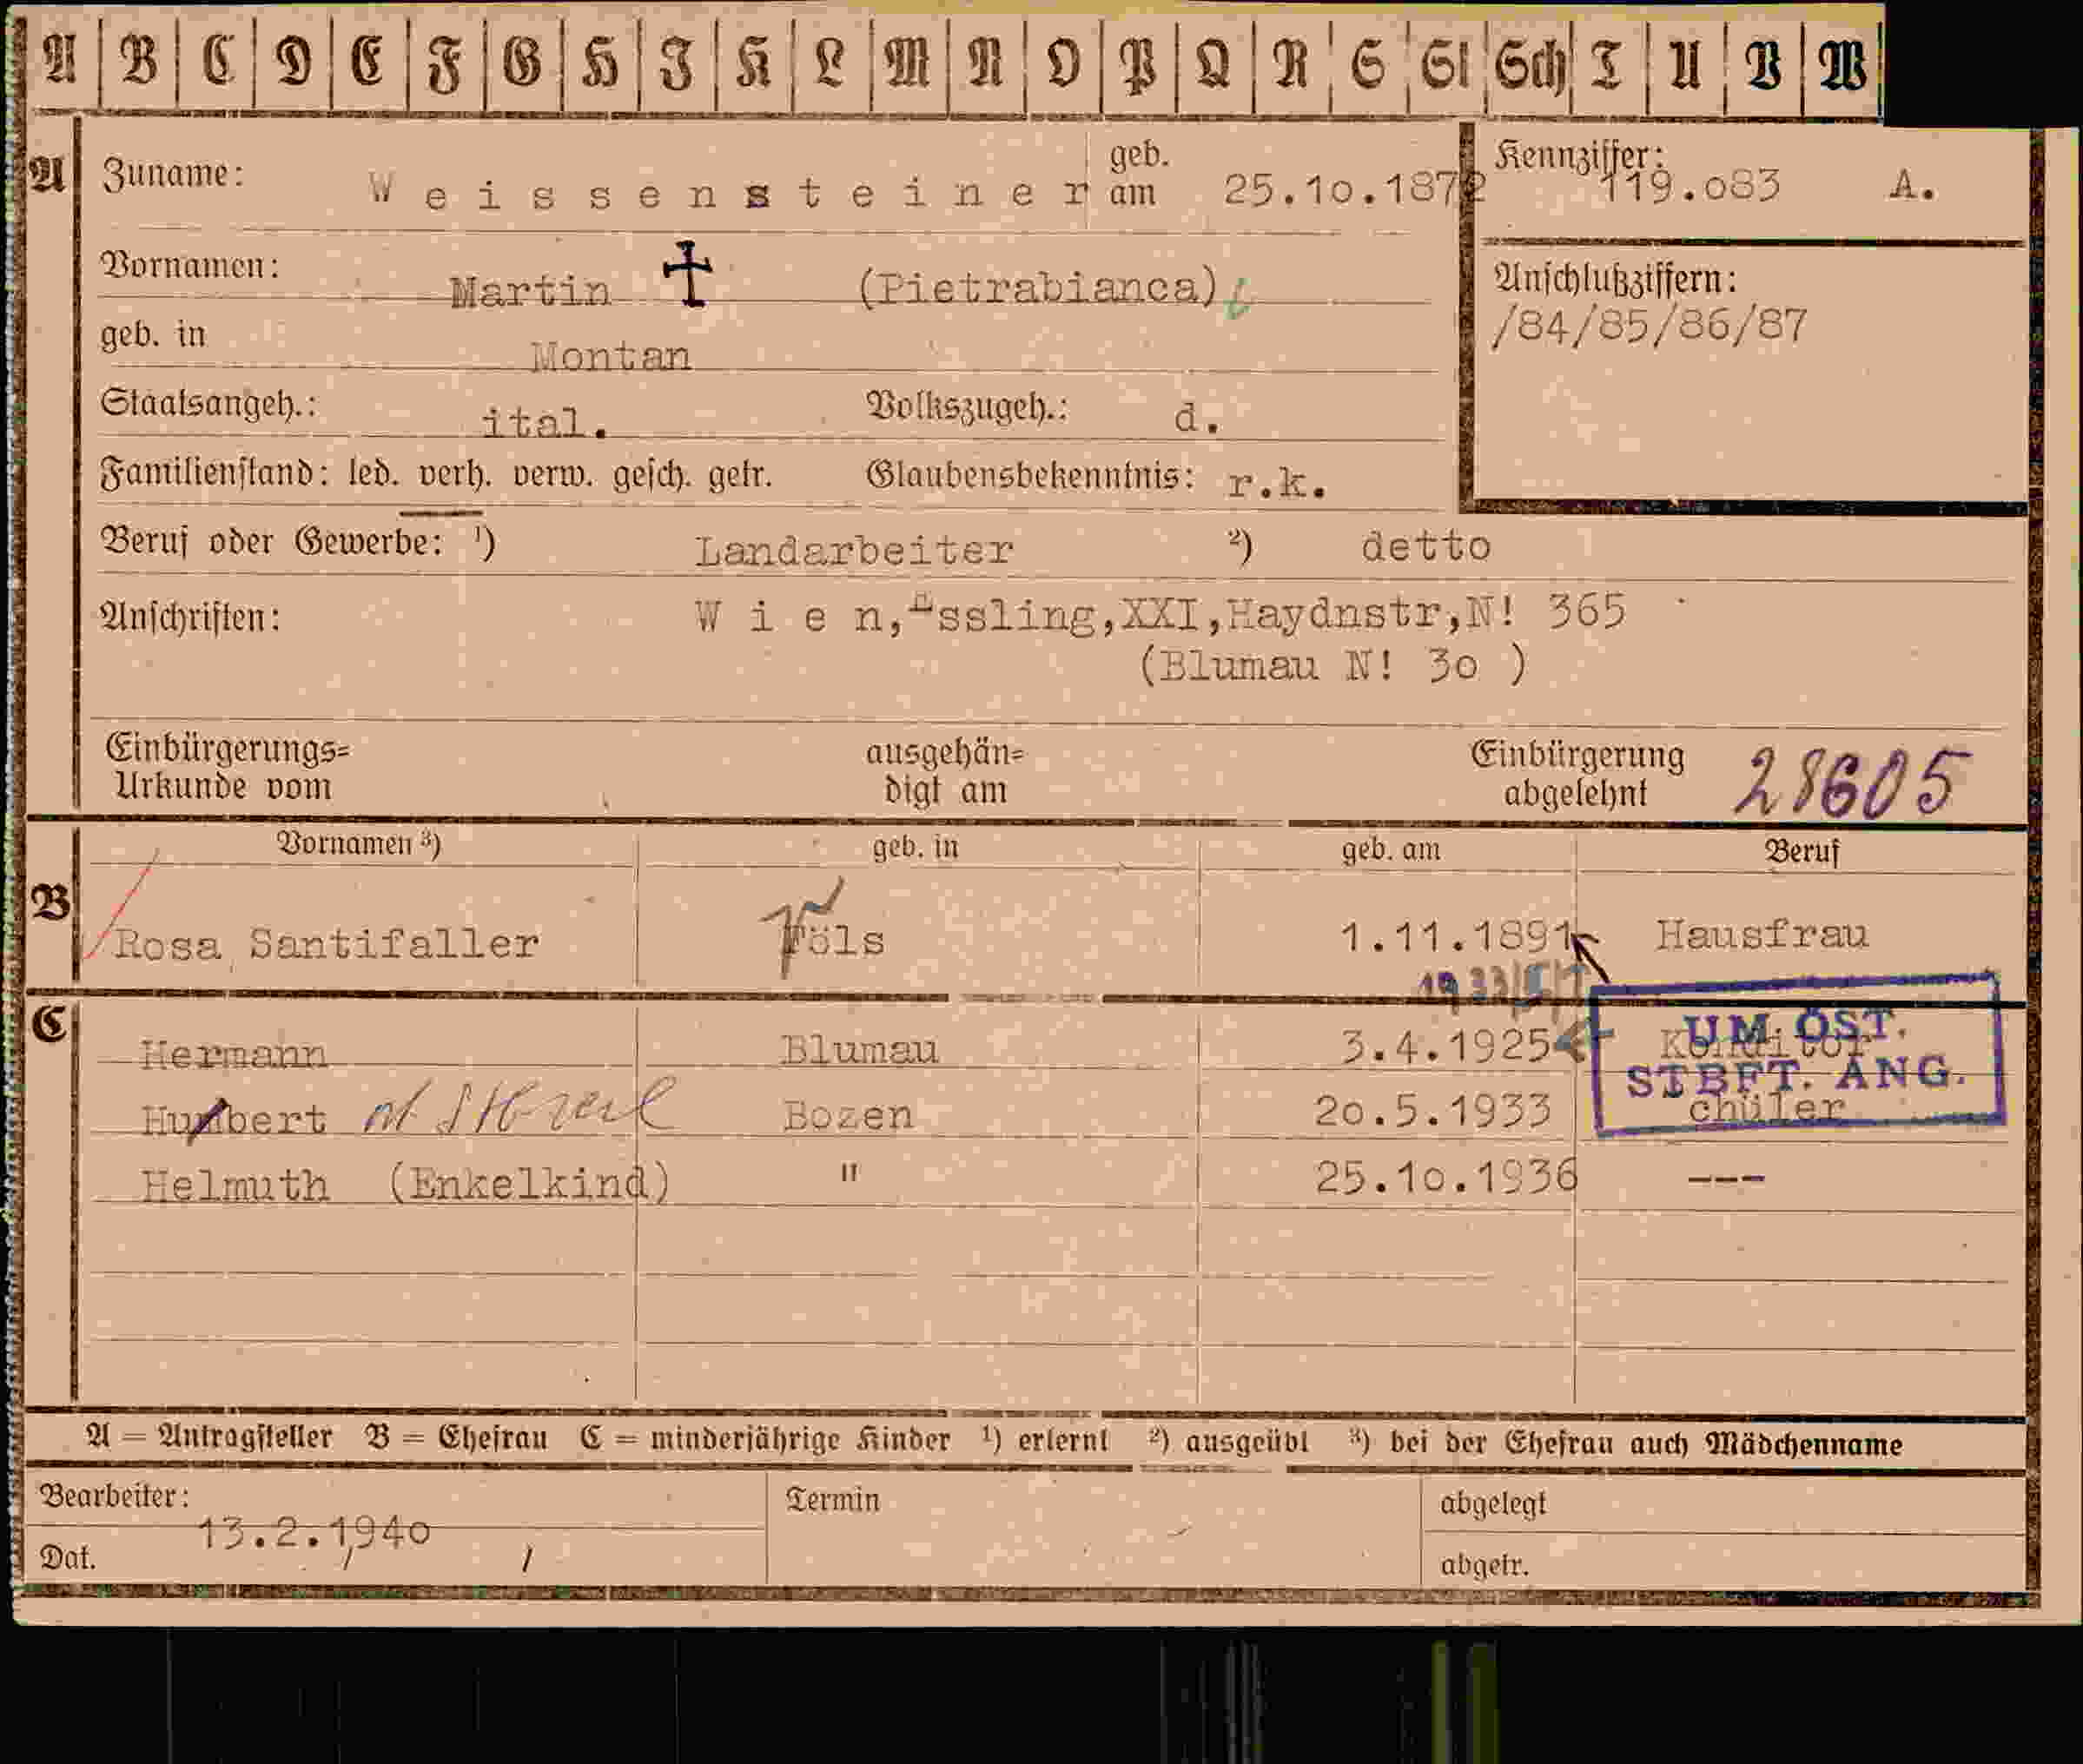 A B C D E F G H I K L M N O P Q R S St Sch T U V W
A Zuname: Weissensteiner geb. am 25.10.1872 Kennziffer: 119.083 A.
Vornamen: Martin † (Pietrabianca) Anschlußziffern:
/84/85/86/87
geb. in Montan
Staatsangeh.: ital. Volkszugeh.: d.
Familienstand: led. verh. verw. gesch. getr. Glaubensbekenntnis: r.k.
Beruf oder Gewerbe: ¹) Landarbeiter ²) detto
Anschriften: W i e n, Essling,XXI,Haydnstr,N! 365
(Blumau N! 30 )
Einbürgerungs= Urkunde vom ausgehän= digt am Einbürgerung abgelehnt 28605
Vornamen ³) geb. in geb. am Beruf
B Rosa Santifaller Völs 1.11.1891 Hausfrau
C Hermann Blumau 3.4.1925 Konditor
UM. ÖST.
STBFT. ANG.
Humbert Bozen 20.5.1933 chüler
Helmuth (Enkelkind) " 25.10.1936 ---
A = Antragsteller B = Ehefrau C = minderjährige Kinder ¹) erlernt ²) ausgeübt ³) bei der Ehefrau auch Mädchenname
Bearbeiter: Termin abgelegt
13.2.1940
Dat. abgetr.